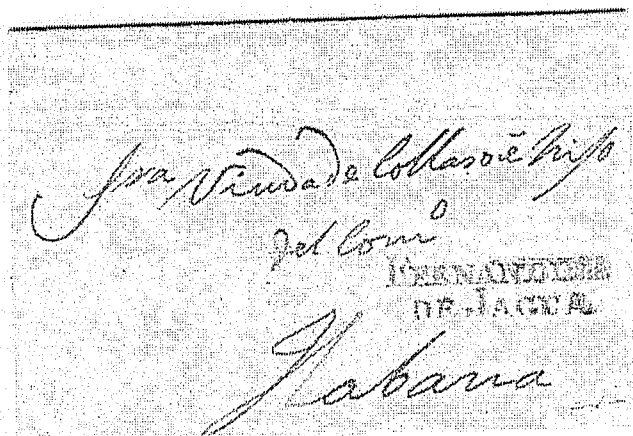 Sra Viuda de Collaso é hijo
del Com.º
FERNANDINA
DE JAGUA
Habana